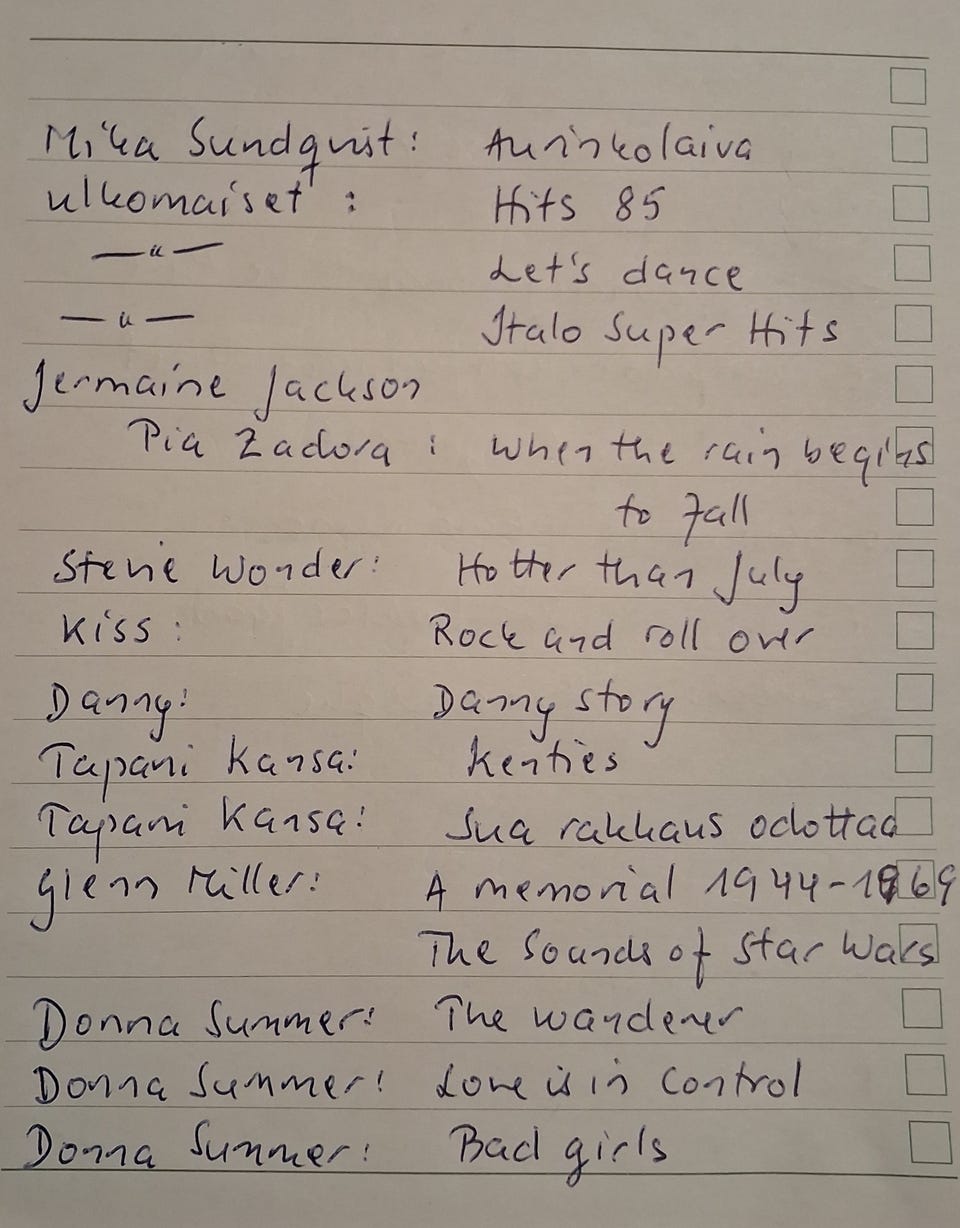 Mika Sundqvist: Aurinkolaiva
ulkomaiset : Hits 85
—"— Let's dance
—"— Italo Super Hits
Jermaine Jackson
Pia Zadora : when the rain begins
to fall
Stevie Wonder: Hotter than July
Kiss : Rock and roll over
Danny: Danny story
Tapani Kansa: Kenties
Tapani Kansa: Sua rakkaus odottaa
Glenn Miller: A memorial 1944-1969
The Sounds of Star Wars
Donna Summer: The wanderer
Donna Summer: Love is in control
Donna Summer: Bad girls